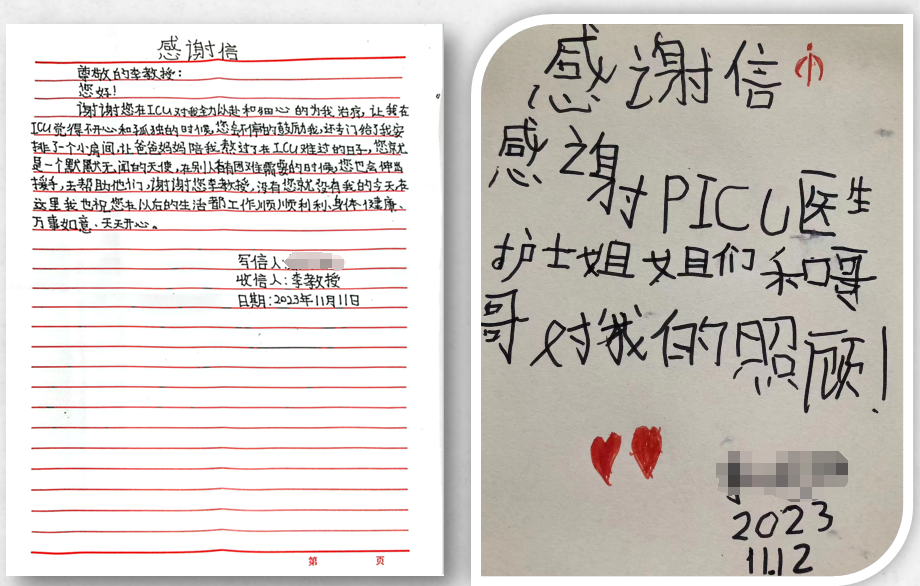 感谢信
尊敬的李教授：
您好！
谢谢您在ICU对我全力以赴和细心的为我治疗，让我在
ICU觉得不开心和孤独的时候，您会不停的鼓励我，还专门给了我安
排了一个小房间，让爸爸妈妈陪我熬过了在ICU难过的日子，您就
是一个默默无闻的天使，在别人有困难需要的时候，您也会伸出
援手，去帮助他们，谢谢您李教授，没有您就没有我的今天在
这里我也祝您在以后的生活都工作顺顺利利、身体健康、
万事如意、天天开心。
写信人：
收信人：李教授
日期：2023年11月11日
第 页
感谢信
感谢PICU医生
护士姐姐们和哥
哥对我的照顾！
2023
11.12